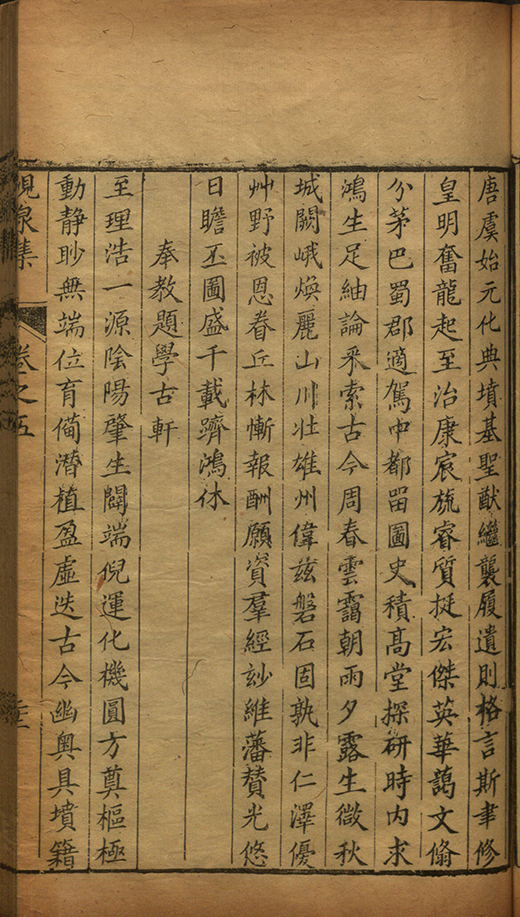 唐虞始元化典墳基聖猷繼襲履遺則格言斯聿修
皇明奮龍起至治康宸旒睿質挺宏傑英華藹文脩
分茅巴蜀郡適駕中都畱圖史積髙堂探研時内求
鴻生足紬論釆索古今周春雲靄朝雨夕露生微秋
城闕峨煥麗山川壯雄州偉兹磐石固孰非仁澤優
艸野被恩眷丘林慚報酬願資羣經玅維藩賛光悠
日瞻丕圖盛千載躋鴻休
奉教題學古軒
至理浩一源陰陽肇生闢端倪運化機圓方奠樞極
動静眇無端位育僃潛植盈虛迭古今幽奥具墳籍
峴泉集
卷之五